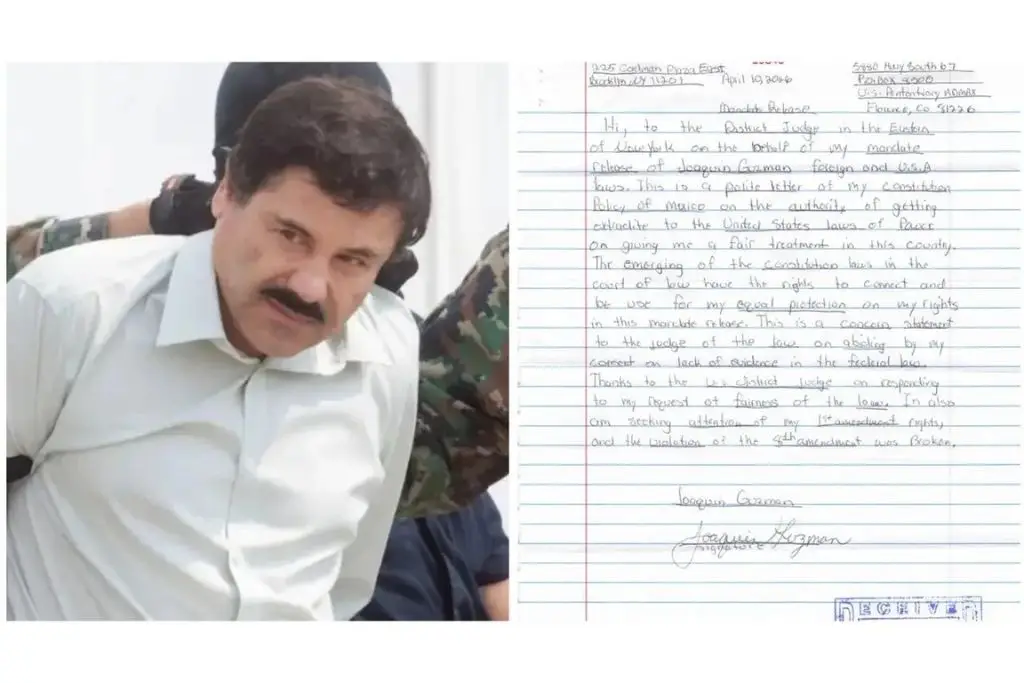 225 Cadman Plaza East
Brooklyn NY 11201
April 10, 2026
5880 Hwy South 67
Po Box 8500
U.S. Penitentiary ADMAX
Florence, Co 81226
Mandate Release
Hi, to the District Judge in the Eastern
of New York on the behalf of my mandate
release of Joaquin Guzman foreign and U.S.A
laws. This is a polite letter of my constitution
Policy of mexico on the authority of getting
extradite to the United States laws of Power
on giving me a fair treatment in this county.
The emerging of the constitution laws in the
court of law have the rights to connect and
be use for my equal protection on my rights
in this mandate release. This is a concern statement
to the judge of the law on abiding by my
consent on lack of evidence in the federal law.
Thanks to the U.S district judge on responding
to my request of fairness of the laws. In also
am seeking attention of my 1st amendment rights,
and the violation of the 8th amendment was Broken.
Joaquin Guzman
Joaquin Guzman
signature
RECEIVE